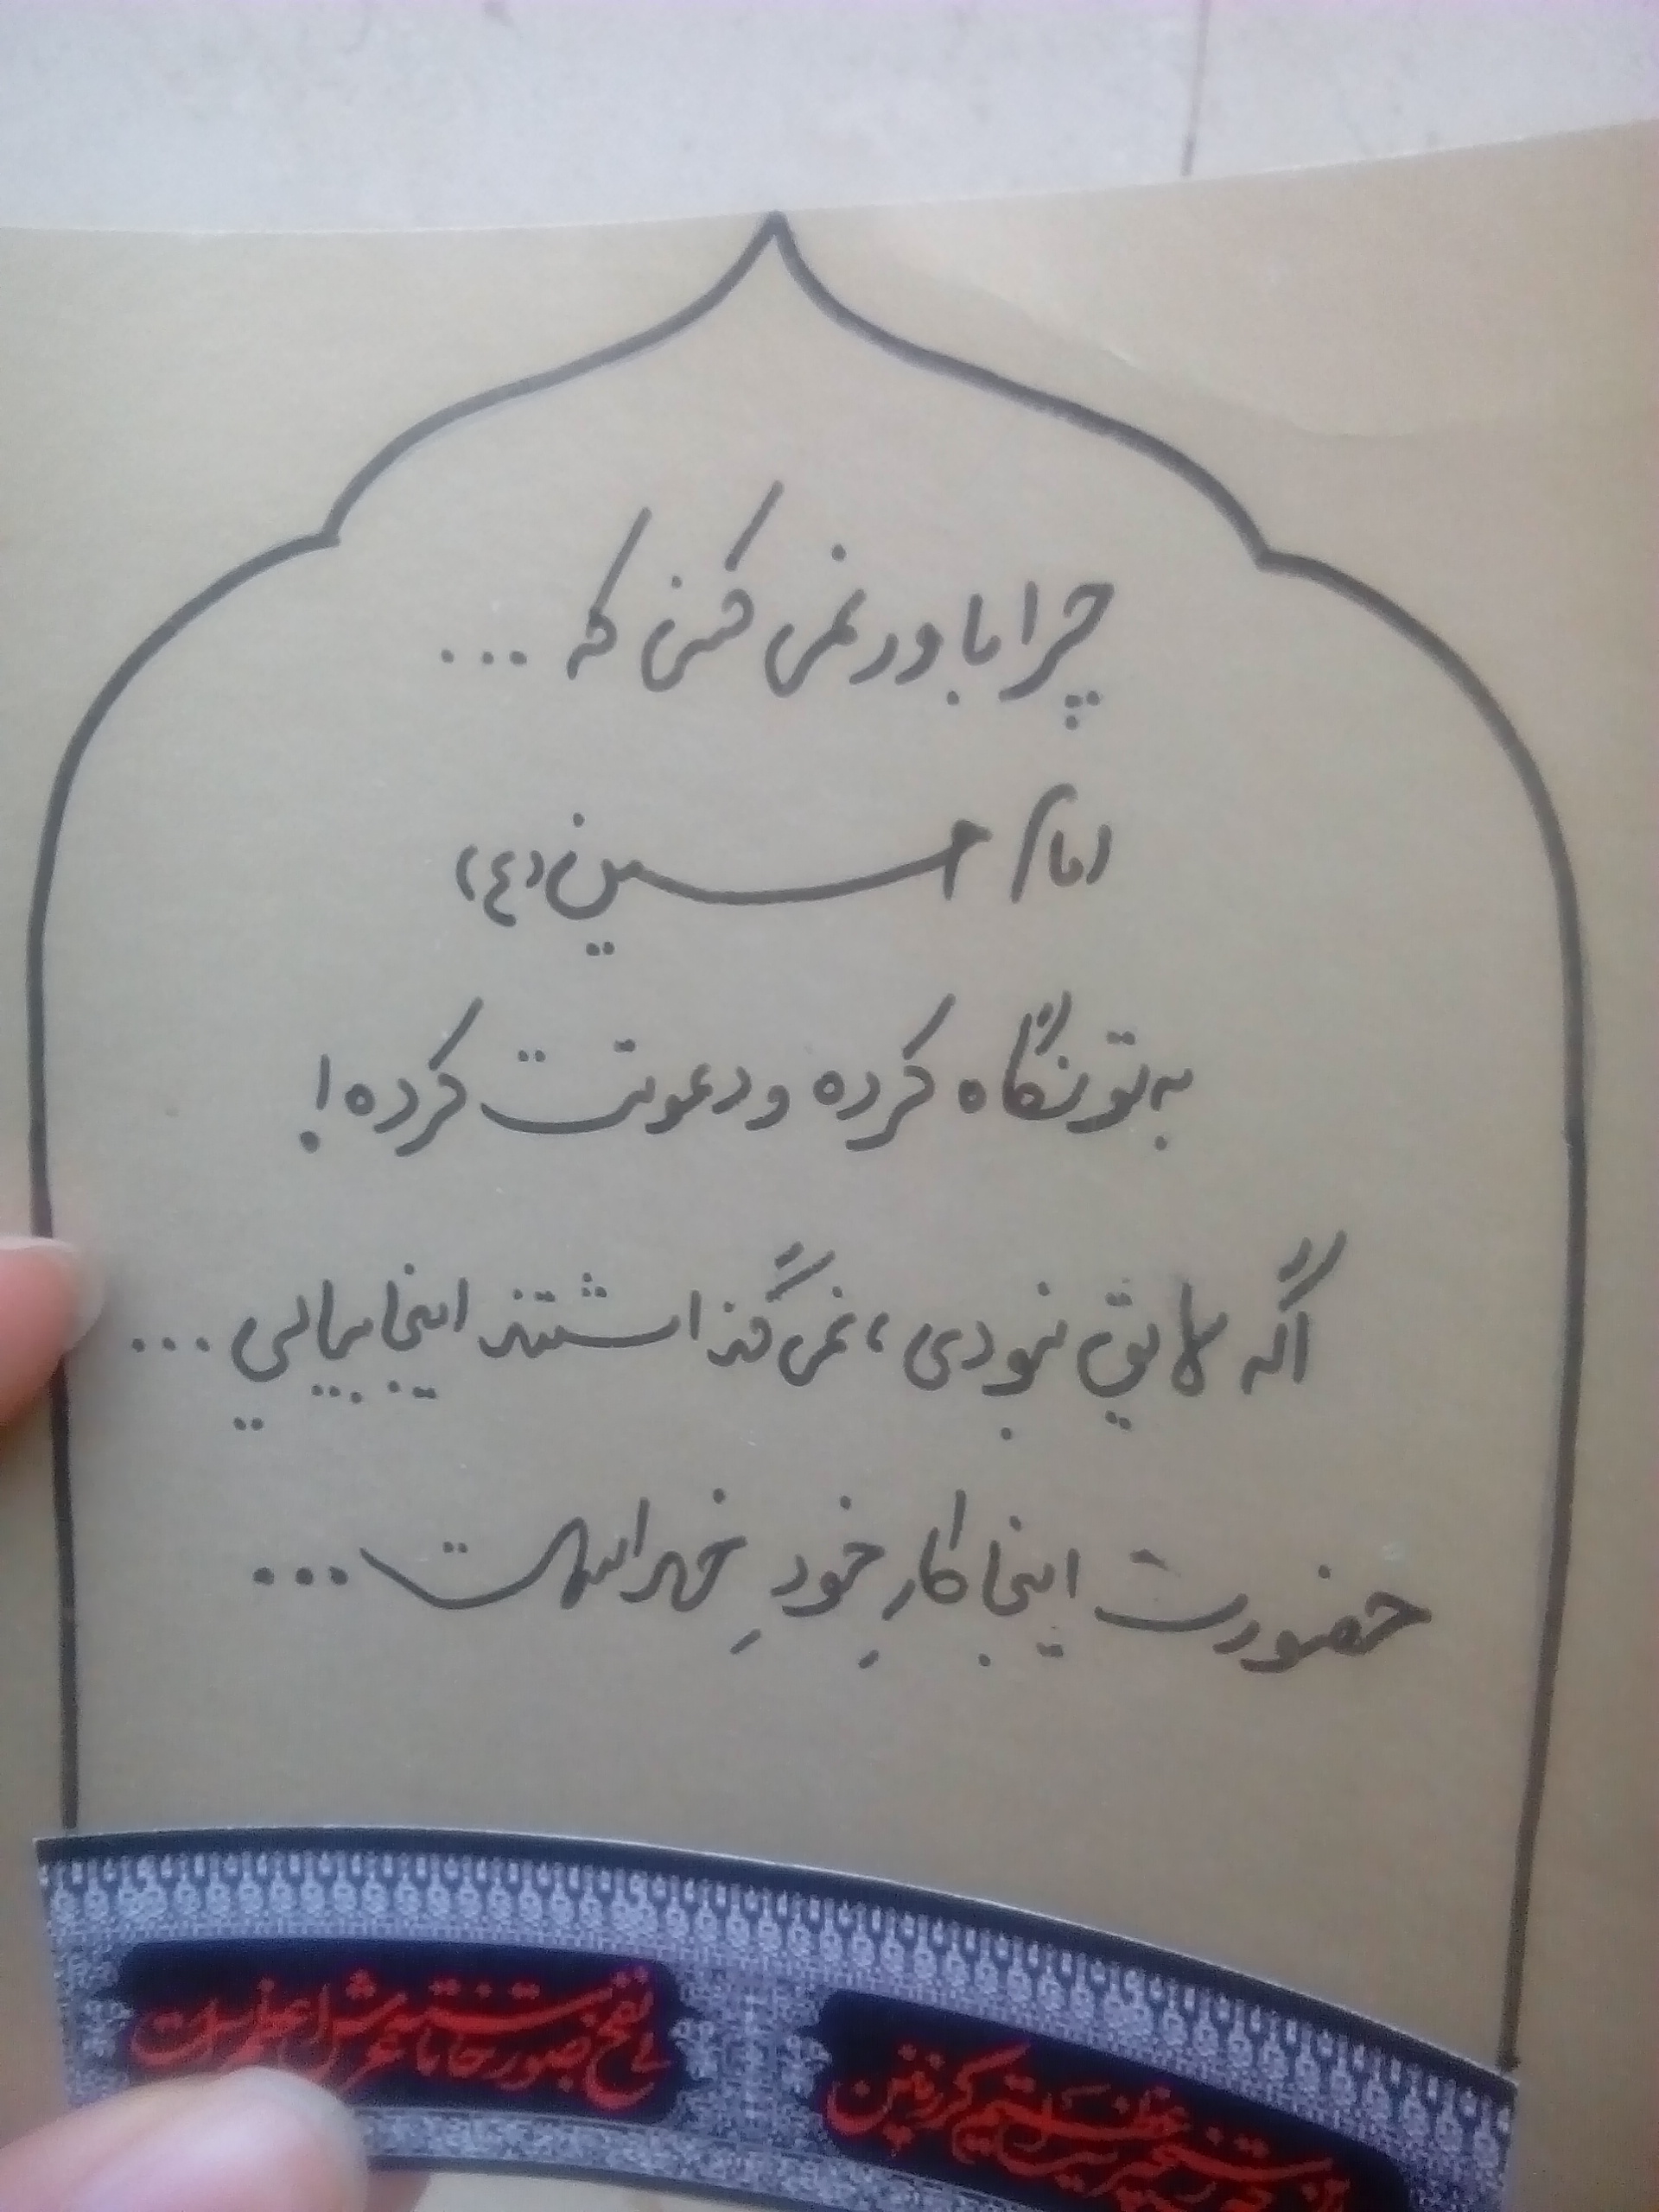 چرا باور نمی کنی که ...
امام حسین (ع)
به تو نگاه کرده و دعوتت کرده !
اگه لایق نبودی ، نمی گذاشتند اینجا بیایی ...
حضورت اینجا کارِ خودِ خداست ...
بی نفخ صور خاسته تا عرش اعظم است